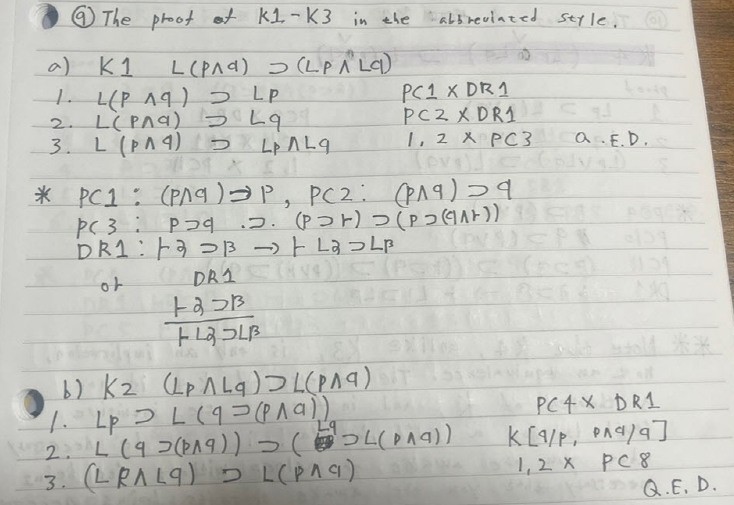 ⑨ The proof of K1-K3 in the abbreviated style.
a) K1 L(p∧q) ⊃ (Lp∧Lq)
1. L(p∧q) ⊃ Lp PC1 × DR1
2. L(p∧q) ⊃ Lq PC2 × DR1
3. L(p∧q) ⊃ Lp∧Lq 1, 2 × PC3 Q.E.D.
* PC1: (p∧q)⊃p, PC2: (p∧q)⊃q
PC3: p⊃q .⊃. (p⊃r)⊃(p⊃(q∧r))
DR1: ⊢α⊃β → ⊢Lα⊃Lβ
or DR1
⊢α⊃β
⊢Lα⊃Lβ
b) K2 (Lp∧Lq)⊃L(p∧q)
1. Lp ⊃ L(q⊃(p∧q)) PC4 × DR1
2. L(q⊃(p∧q)) ⊃ (Lq⊃L(p∧q)) K[q/p, p∧q/q]
3. (Lp∧Lq) ⊃ L(p∧q) 1, 2 × PC8
Q.E.D.